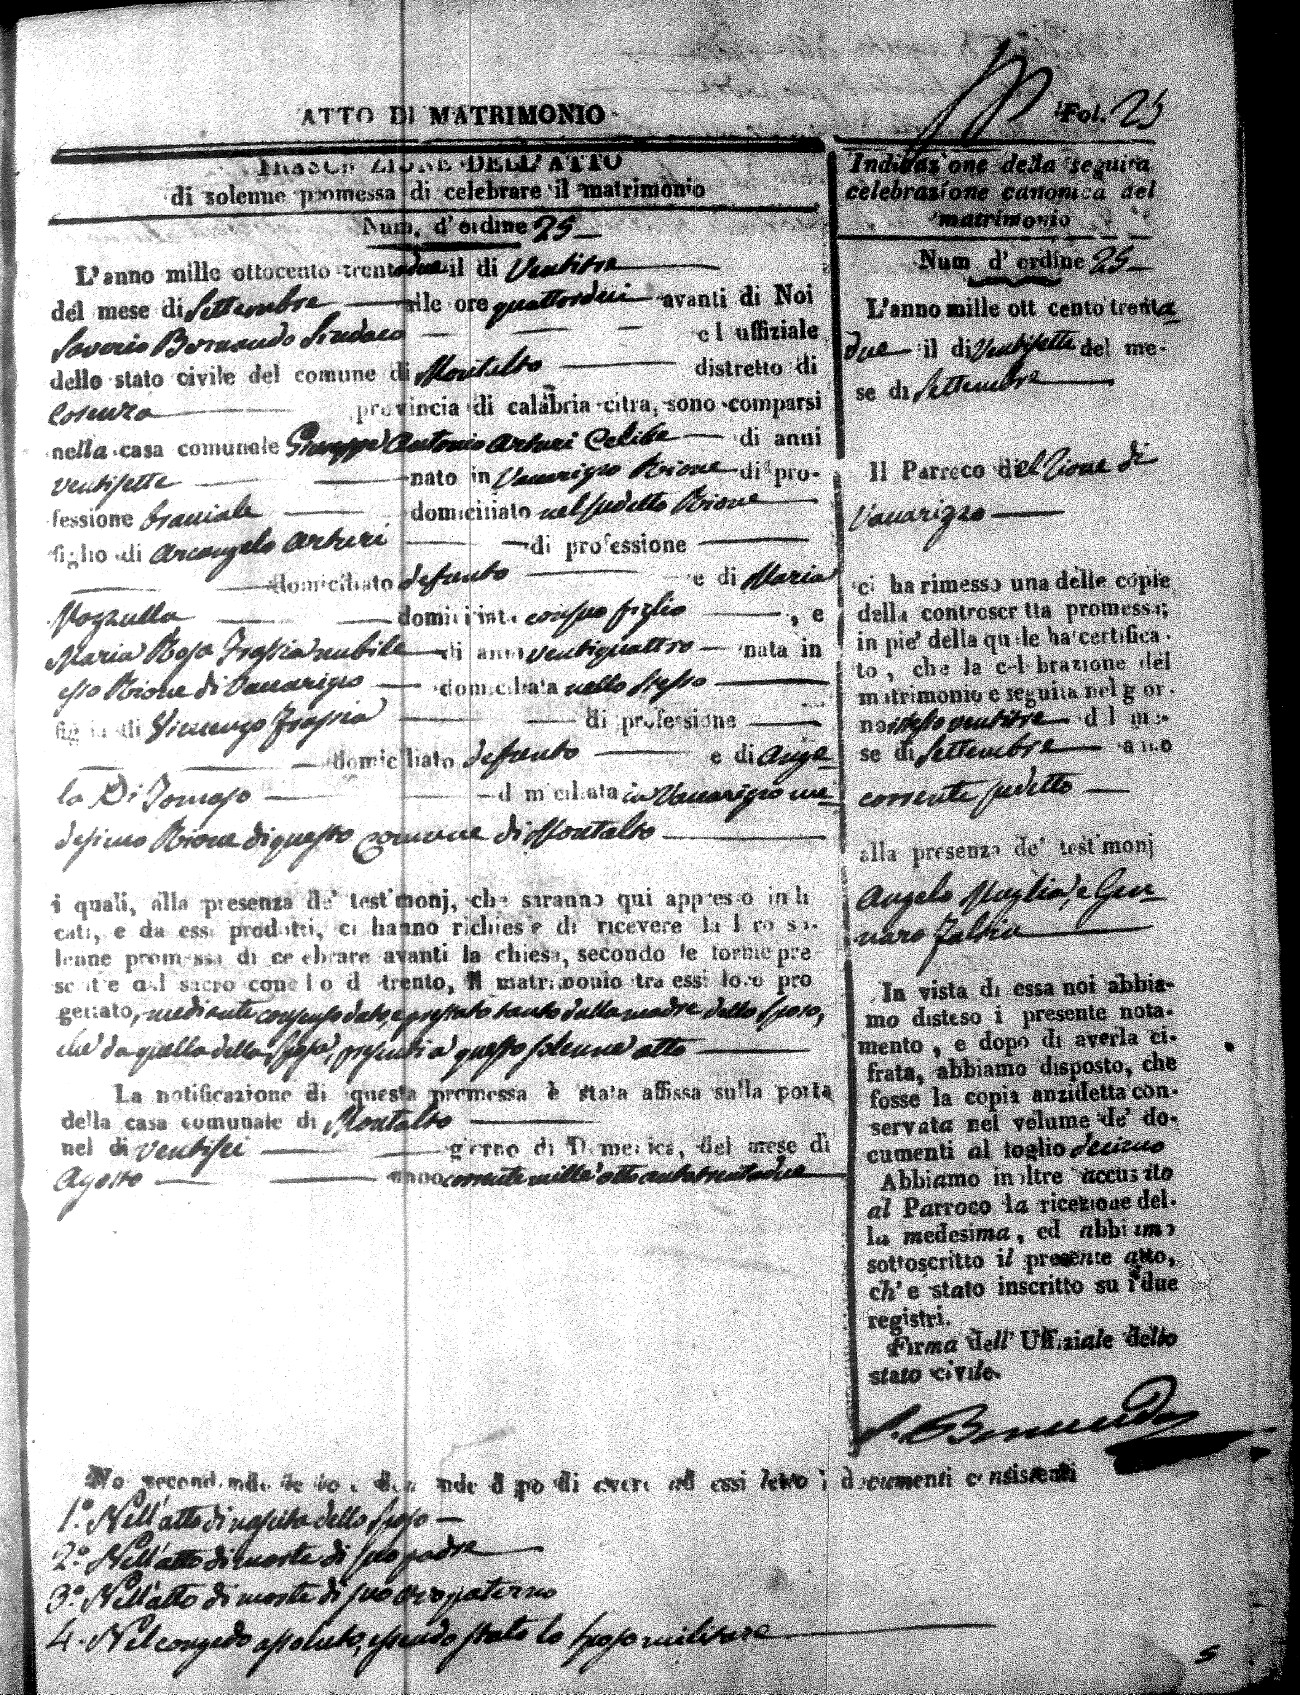 Fol. 25
ATTO DI MATRIMONIO
TRASCRIZIONE DELL'ATTO
di solenne promessa di celebrare il matrimonio
Num. d'ordine 25
L'anno mille ottocento trentadue il di Ventitre
del mese di Settembre alle ore quattordici avanti di Noi
Saverio Bernardo Sindaco ed uffiziale
dello stato civile del comune di Montalto distretto di
Cosenza provincia di calabria citra, sono comparsi
nella casa comunale Giuseppe Antonio Arturi Celibe di anni
ventisette nato in Vaccarizzo Rione di pro-
fessione bracciale domiciliato nel sudetto Rione
figlio di Arcangelo Arturi di professione
domiciliato defunto e di Maria
domiciliata con suo figlio , e
Maria Rosa Frassia nubile di anni ventiquattro nata in
esso Rione di Vaccarizzo domiciliata nello stesso
figlia di Vincenzo Frassia di professione
domiciliato defunto e di Ange
la Di Tomaso domiciliata in Vaccarizzo me
desimo Rione di questo comune di Montalto
i quali, alla presenza de' testimonj, che saranno qui appresso indi
cati, e da essi prodotti, ci hanno richiesto di ricevere la loro so-
lenne promessa di celebrare avanti la chiesa, secondo le forme pre
scritte dal sacro concilio di trento, il matrimonio tra essi loro pro
gettato, mediante consenso dato, e prestato tanto dalla madre dello sposo,
che da quella della sposa, presenti a questo solenne atto
La notificazione di questa promessa è stata affissa sulla porta
della casa comunale di Montalto
nel di ventisei giorno di Domenica, del mese di
Agosto anno corrente mille ottocentotrentadue
Noi secondando le loro domande dopo di avere ad essi letto i documenti consistenti
1.° Nell'atto di nascita dello sposo
2.° Nell'atto di morte di suo padre
3.° Nell'atto di morte di suo avo paterno
4. Nel congedo assoluto, essendo stato lo sposo militare
Indicazione della seguita
celebrazione canonica del
matrimonio
Num d'ordine 25
L'anno mille ottocento trenta
due il di Ventisette del me-
se di Settembre
Il Parroco del Rione di
Vaccarizzo
ci ha rimesso una delle copie
della controscritta promessa;
in pie' della quale ha certifica-
to, che la celebrazione del
matrimonio e seguita nel gior-
no stesso ventitre del me-
se di Settembre anno
corrente sudetto
alla presenza de' testimonj
Angelo Maglia, e Gen
naro
In vista di essa noi abbia-
mo disteso il presente nota-
mento, e dopo di averla ci-
frata, abbiamo disposto, che
fosse la copia anzidetta con-
servata nel volume de' do-
cumenti al foglio decimo
Abbiamo inoltre accusato
al Parroco la ricezione del-
la medesima, ed abbiamo
sottoscritto il presente atto,
ch'e stato inscritto su i due
registri.
Firma dell'Uffiziale dello
stato civile.
S. Bernardo